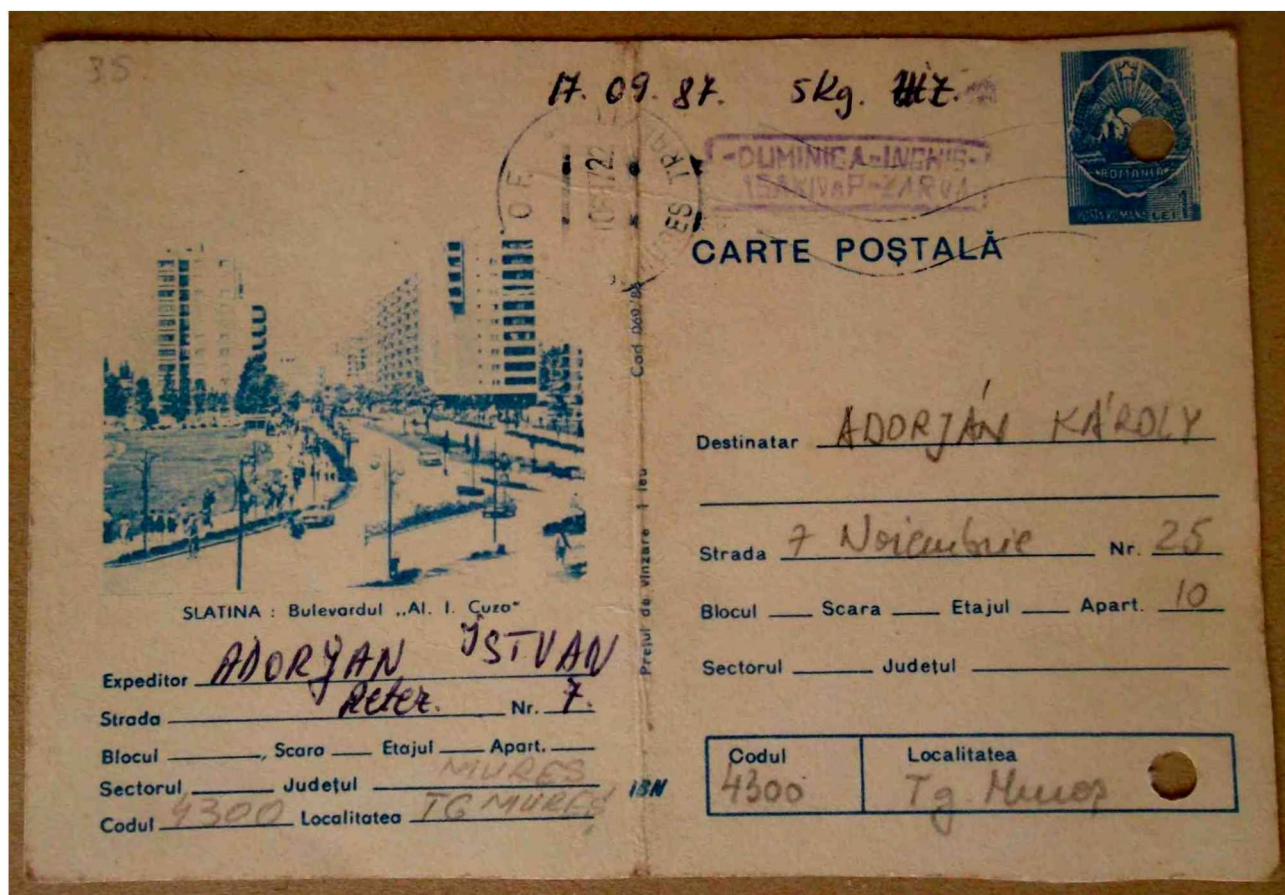 35
17. 09. 87. 5kg.
TIRGU MURES
-DUMINICA-INCHIS-
ROMANIA
POSTA ROMANA LEI 1
CARTE POȘTALĂ
Cod 069/86
Prețul de vînzare 1 leu
SLATINA : Bulevardul „Al. I. Cuza"
Expeditor ADORJAN ISTVAN
Strada Retez. Nr. 7.
Blocul , Scara Etajul Apart.
Sectorul Județul MURES
Codul 4300 Localitatea TG MUREȘ
IBN
Destinatar ADORJÁN KÁROLY
Strada 7 Noiembrie Nr. 25
Blocul Scara Etajul Apart. 10
Sectorul Județul
Codul Localitatea
4300 Tg. Mureș